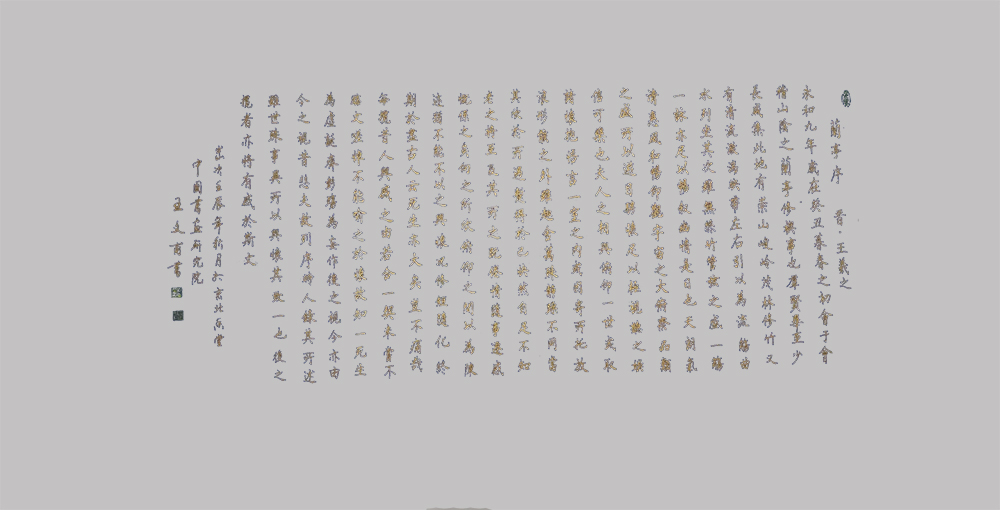 蘭亭序 晉·王羲之
永和九年歲在癸丑暮春之初會于會
稽山陰之蘭亭修禊事也羣賢畢至少
長咸集此地有崇山峻岭茂林修竹又
有清流激湍映帶左右引以為流觴曲
水列坐其次雖無絲竹管弦之盛一觴
一詠亦足以暢敘幽情是日也天朗氣
清惠風和暢仰觀宇宙之大俯察品類
之盛所以遊目騁懷足以極視聽之娛
信可樂也夫人之相與俯仰一世或取
諸懷抱悟言一室之內或因寄所託放
浪形骸之外雖趣舍萬殊靜躁不同當
其欣於所遇暫得於己快然自足不知
老之將至及其所之既倦情隨事遷感
慨係之矣向之所欣俯仰之間以為陳
迹猶不能不以之興懷況修短隨化終
期於盡古人云死生亦大矣豈不痛哉
每覽昔人興感之由若合一契未嘗不
臨文嗟悼不能喻之於懷故知一死生
為虛誕齊彭殤為妄作後之視今亦由
今之視昔悲夫故列序時人錄其所述
雖世殊事異所以興懷其致一也後之
攬者亦將有感於斯文
歲次壬辰年秋月於京北堂
中國書畫研究院
王文甫書